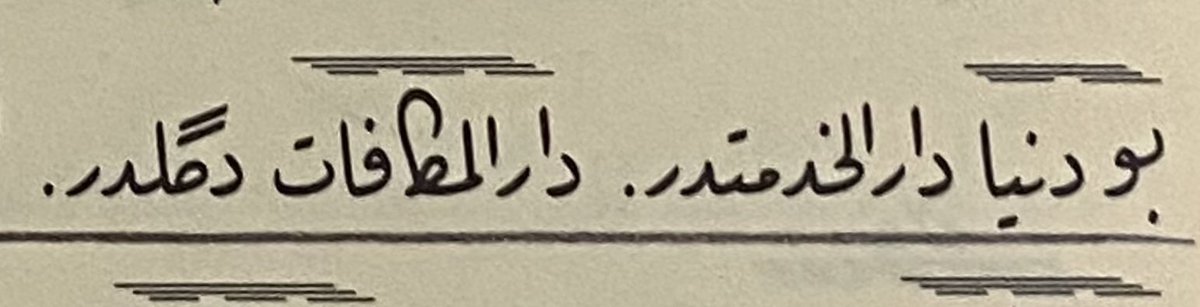 بو دنيا دارالخدمتدر. دارالمكافات دگلدر.